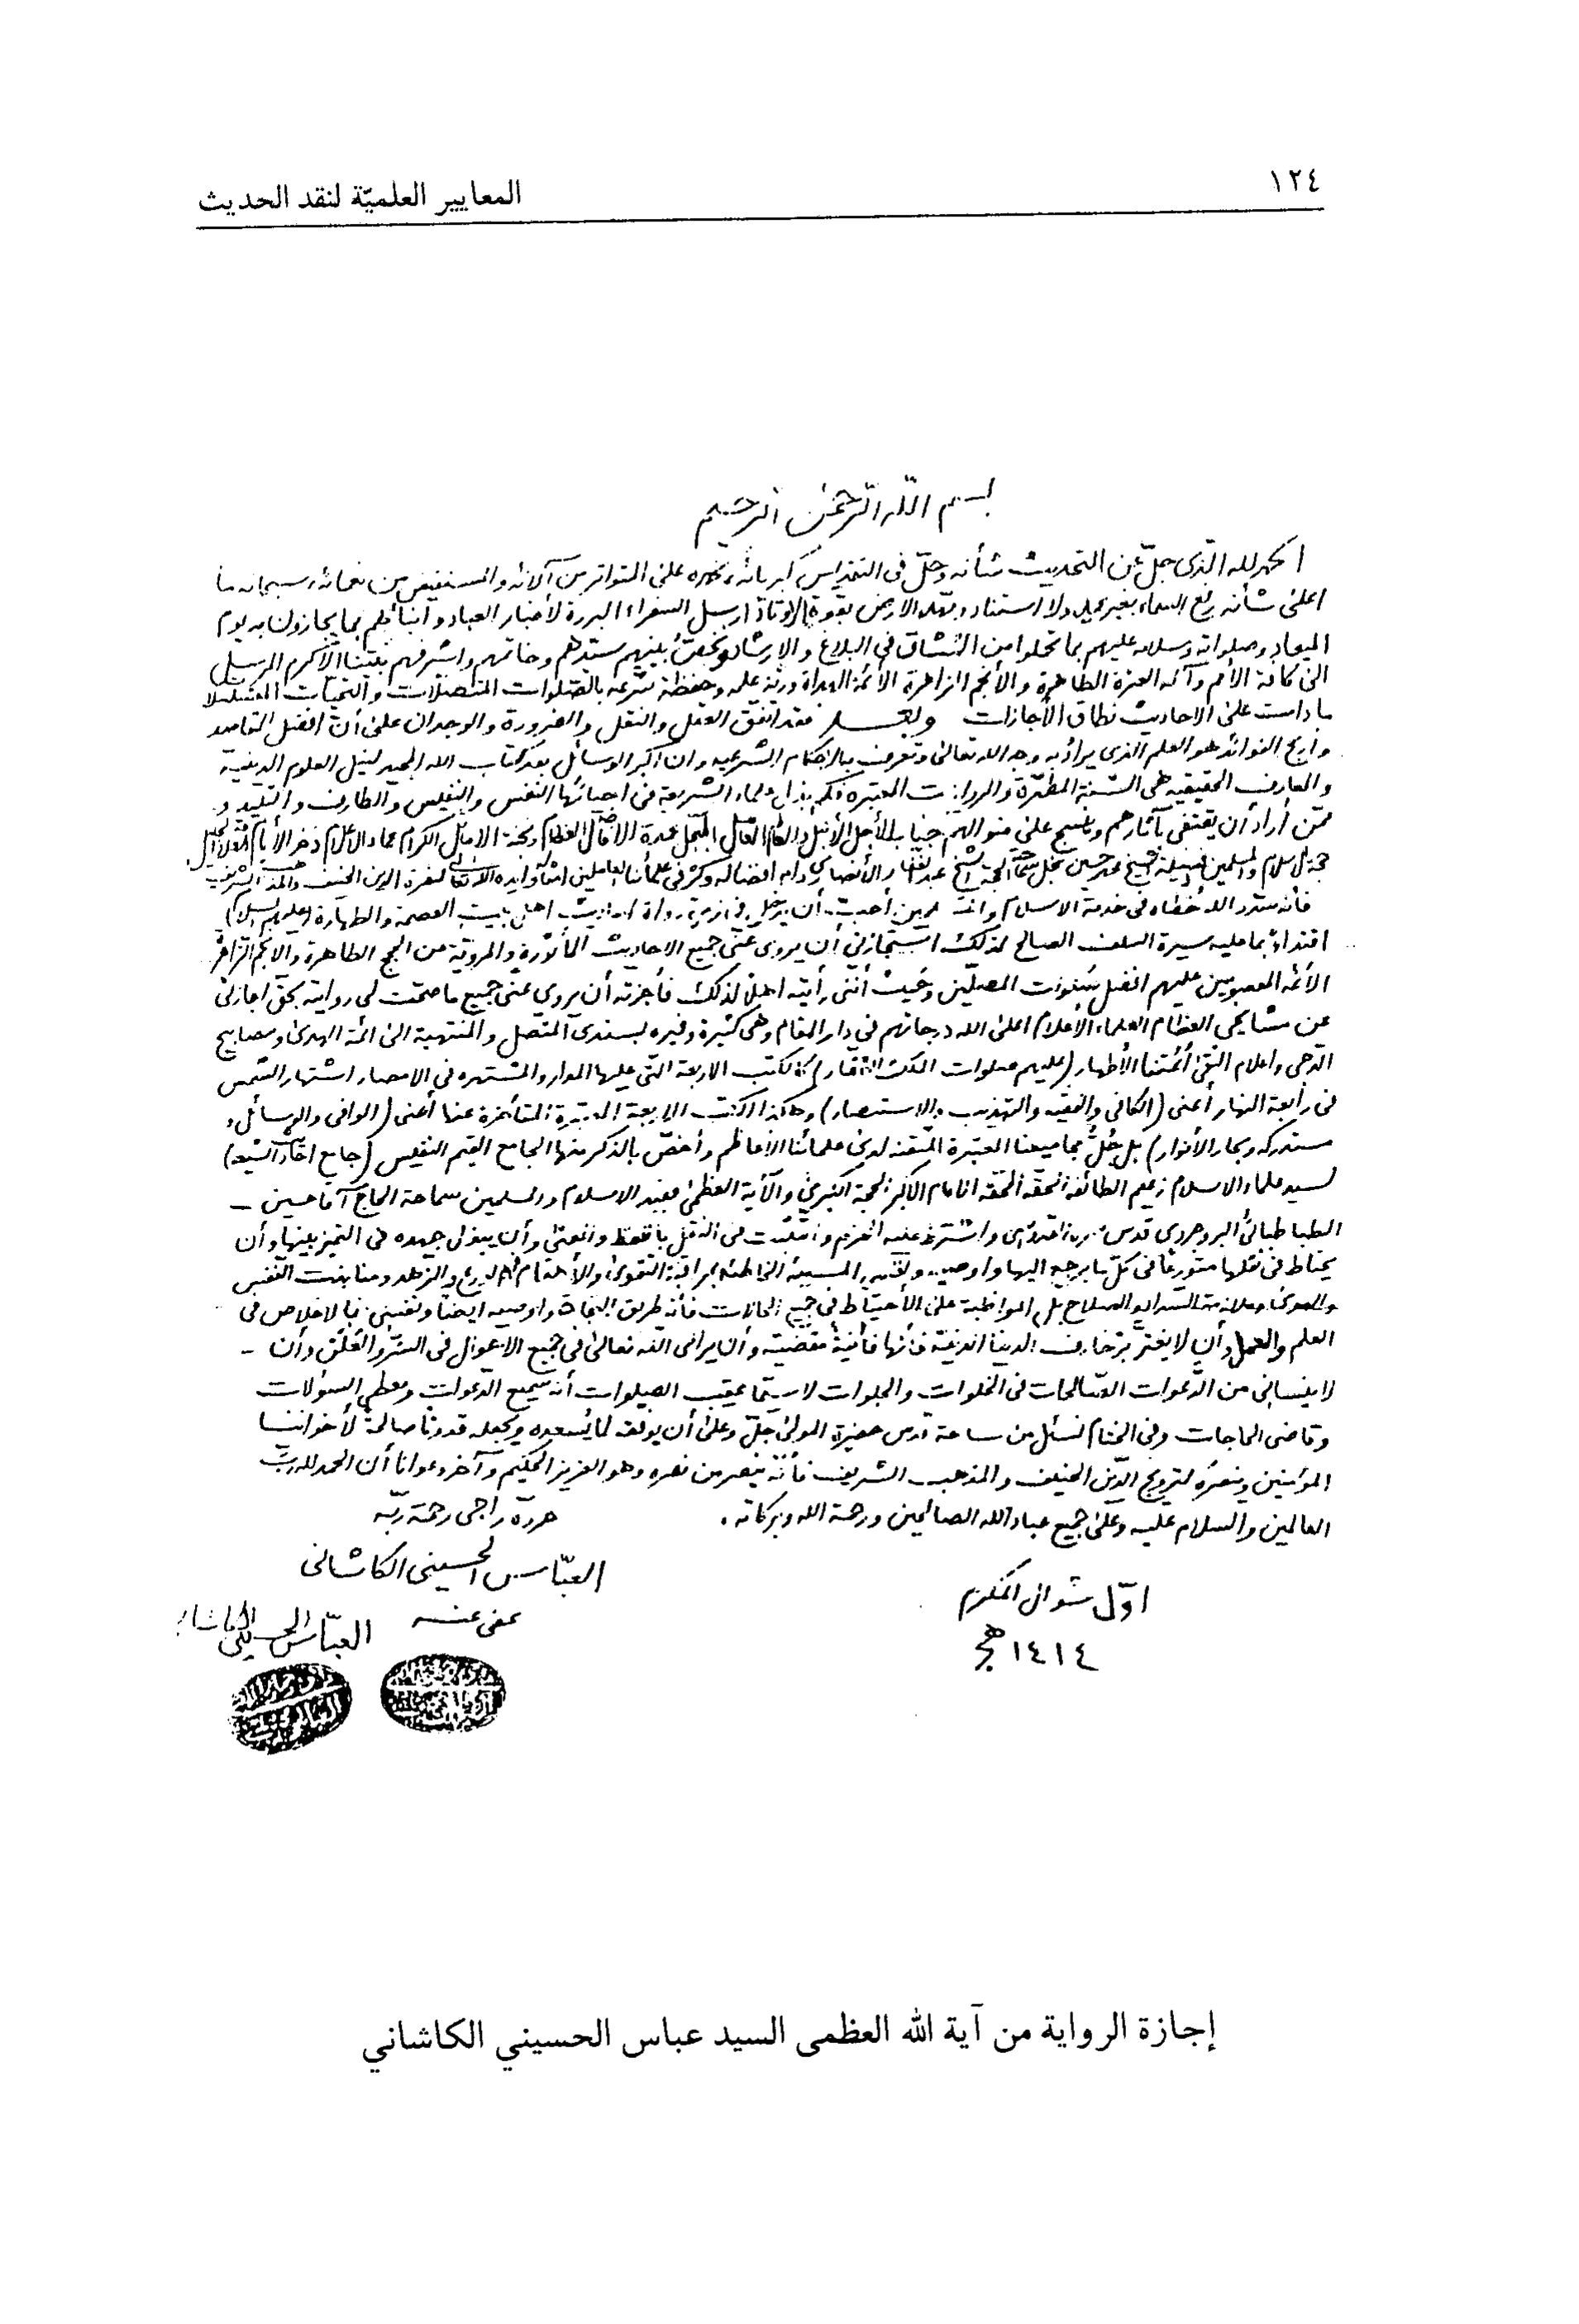 ١٢٤
المعايير العلميّة لنقد الحديث
بسم الله الرّحمن الرّحيم
الحمد لله الّذى جلّ عن التحديث شأنه وجلّ فى التقديس كبريائه نحمده على المتواتر من آلائه والمستفيض من نعمائه سبحانه ما
اعلى شأنه رفع السماء بغير عمد ولا استناد ومهد الارض بقوة الاوتاد ارسل السفراء البررة لأخبار العباد وأنبأهم بما يجازون به يوم
الميعاد وصلواته وسلامه عليهم بما تحلوا من المشاق فى البلاغ والارشاد ونخصّ بينهم سيّدهم وخاتمهم واشرفهم نبيّنا الأكرم المرسل
الى كافة الأمم وآله العترة الطاهرة والأنجم الزاهرة الأئمة الهداة ورثة علمه وحفظة شرعه بالصّلوات المتصلات والتحيات
ما دامت على الاحاديث نطاق الأجازات وبعد فقد اتفق العقل والنقل والضرورة والوجدان على أنّ افضل المقاصد
واربح الفوائد هو العلم الذى يراد به وجه الله تعالى وتعرف به الاحكام الشرعيه وان اكبر الوسائل بعد كتاب الله المجيد لنيل العلوم الدينية
والمعارف الحقيقيه هى السّنة المطهّرة والروايات المعتبره فكم بذل علماء الشريعة فى احيائها النفس والنفيس والطارف والتليد و
ممّن أراد أن يقتفى بآثارهم وينسج على منوالهم جناب الأجل الأنبل المبجّل عمدة الأفاضل العظام ونخبة الاماثل الكرام عماد الاعلام ذخر الأيام
حجة الاسلام والمسلمين فضيلة الشيخ محمد حسين نجل سماحة الحجة الشيخ عبد الغفار الأنصارى دام افضاله وكثر فى علمائنا العاملين امثاله وايده الله تعالى لنصرة الدين الحنيف والمذهب الشريف
فأنه سدد الله خطاه فى خدمة الاسلام أحبّ أن يدخل فى زمرة رواة احاديث اهل بيت العصمة والطهارة (عليهم السلام)
اقتداءً بما عليه سيرة السلف الصالح لذلك استجازنى أن يروى عنّى جميع الاحاديث المأثورة والمروّية عن الحجج الطاهرة والانجم الزاهرة
الأئمة المعصومين عليهم افضل صلوات المصلّين وحيث أننى رأيته اهلاً لذلك فأجزته أن يروى عنى جميع ما صحّت لى روايته بحق اجازتى
عن مشايخى العظام العلماء الأعلام اعلى الله درجاتهم فى دار المقام وهى كثيرة وفيره بسندى المتصل والمنتهية الى ائمة الهدى ومصابيح
الدّجى واعلام التقى أئمّتنا الأطهار (عليهم صلوات الملك الغفار) كالكتب الاربعة التى عليها المدار والمشتهره فى الامصار اشتهار الشمس
فى رابعة النهار أعنى (الكافى والفقيه والتهذيب والاستبصار) وهكذا الكتب الاربعة المعتبرة المتأخرة عنها أعنى (الوافى والوسائل و
مستدركه وبحار الأنوار) بل جُلّ مجاميعنا المعتبرة المتقنه لدى علمائنا الأعاظم وأخصّ بالذكر منها الجامع القيم النفيس (جامع احاديث الشيعه)
لسيد علماء الاسلام زعيم الطائفه المحقّه الحقّه الامام الأكبر الحجة الكبرى والآية العظمى فقيد الاسلام والمسلمين سماحة الحاج آقا حسين –
الطباطبائى البروجردى قدس واشترط عليه العزم والتثبت فى النقل باللفظ والمعنى وأن يبذل جهده فى التميز بينها وأن
يحتاط فى نقلها متورعاً فى كلّ ما يرجع اليها واوصيه ونفسى المسيئة الخاطئة بمراقبة التقوى والأهتمام فى الورع والزهد ومنابذت النفس
والهوى وملازمة السداد والصلاح بل المواظبة على الأحتياط فى جميع الحالات فأنه طريق النجاة واوصيه ايضاً ونفسى بالاخلاص فى
العلم والعمل وأن لا يغتر بزخارف الدينا الدنيّة فأنها فانيةٌ مقضيّة وأن يراقب الله تعالى فى جميع الاحوال فى السّر والعَلَن وأن –
لا ينسانى من الدّعوات الصّالحات فى الخلوات والجلوات لا سيّما عقيب الصلوات أنه سميع الدّعوات ومعطى السؤلات
وقاضى الحاجات وفى الختام نسئل من ساحة قدس حضرة المولى جلّ وعلى أن يوفقه لما يُسعده ويجعله قدوتاً صالحة لأخواننا
المؤمنين وينصره لترويج الدّين الحنيف والمذهب الشريف فأنّه ينصر من نصره وهو العزيز الحكيم وآخر دعوانا أن الحمد لله ربّ
العالمين والسلام عليه وعلى جميع عباد الله الصالحين ورحمة الله وبركاته .
حرره راجى رحمة ربّه
العبّاس الحسينى الكاشانى
عفى عنه
العبّاس الحسينى الكاشانى
اوّل شوال المكرم
١٤١٤ هج
إجازة الرواية من آية الله العظمى السيد عباس الحسيني الكاشاني